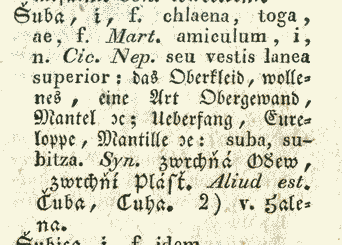 Šuba, i, f. chlaena, toga,
ae, f. Mart. amiculum, i,
n. Cic. Nep. seu vestis lanea
superior: das Oberkleid, wolle=
nes, eine Art Obergewand,
Mantel ꝛc; Ueberfang, Eure=
loppe, Mantille ꝛc: suba, su-
bitza. Syn. zwrchňá Oděw,
zwrchňí Plásť. Aliud est.
Čuba, Cuha. 2) v. Hale=
na.
i, f. idem